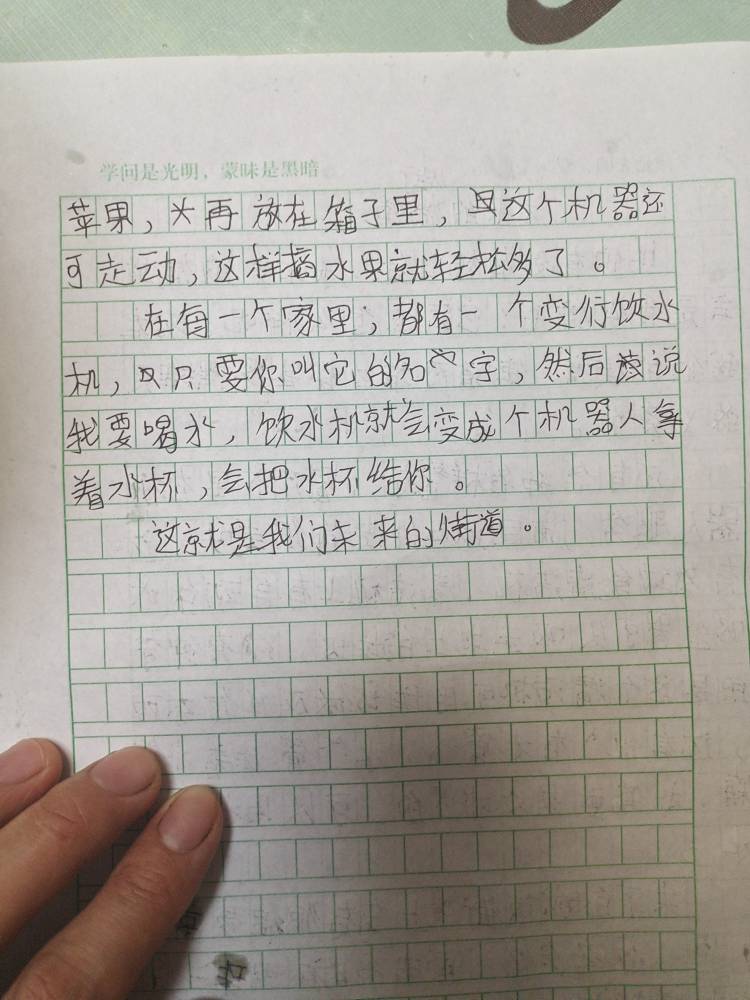 学问是光明，蒙昧是黑暗
苹果，再放在箱子里，且这个机器还
可走动，这样摘水果就轻松多了。
在每一个家里，都有一个变行饮水
机，只要你叫它的名字，然后说
我要喝水，饮水机就会变成个机器人拿
着水杯，会把水杯给你。
这就是我们未来的街道。